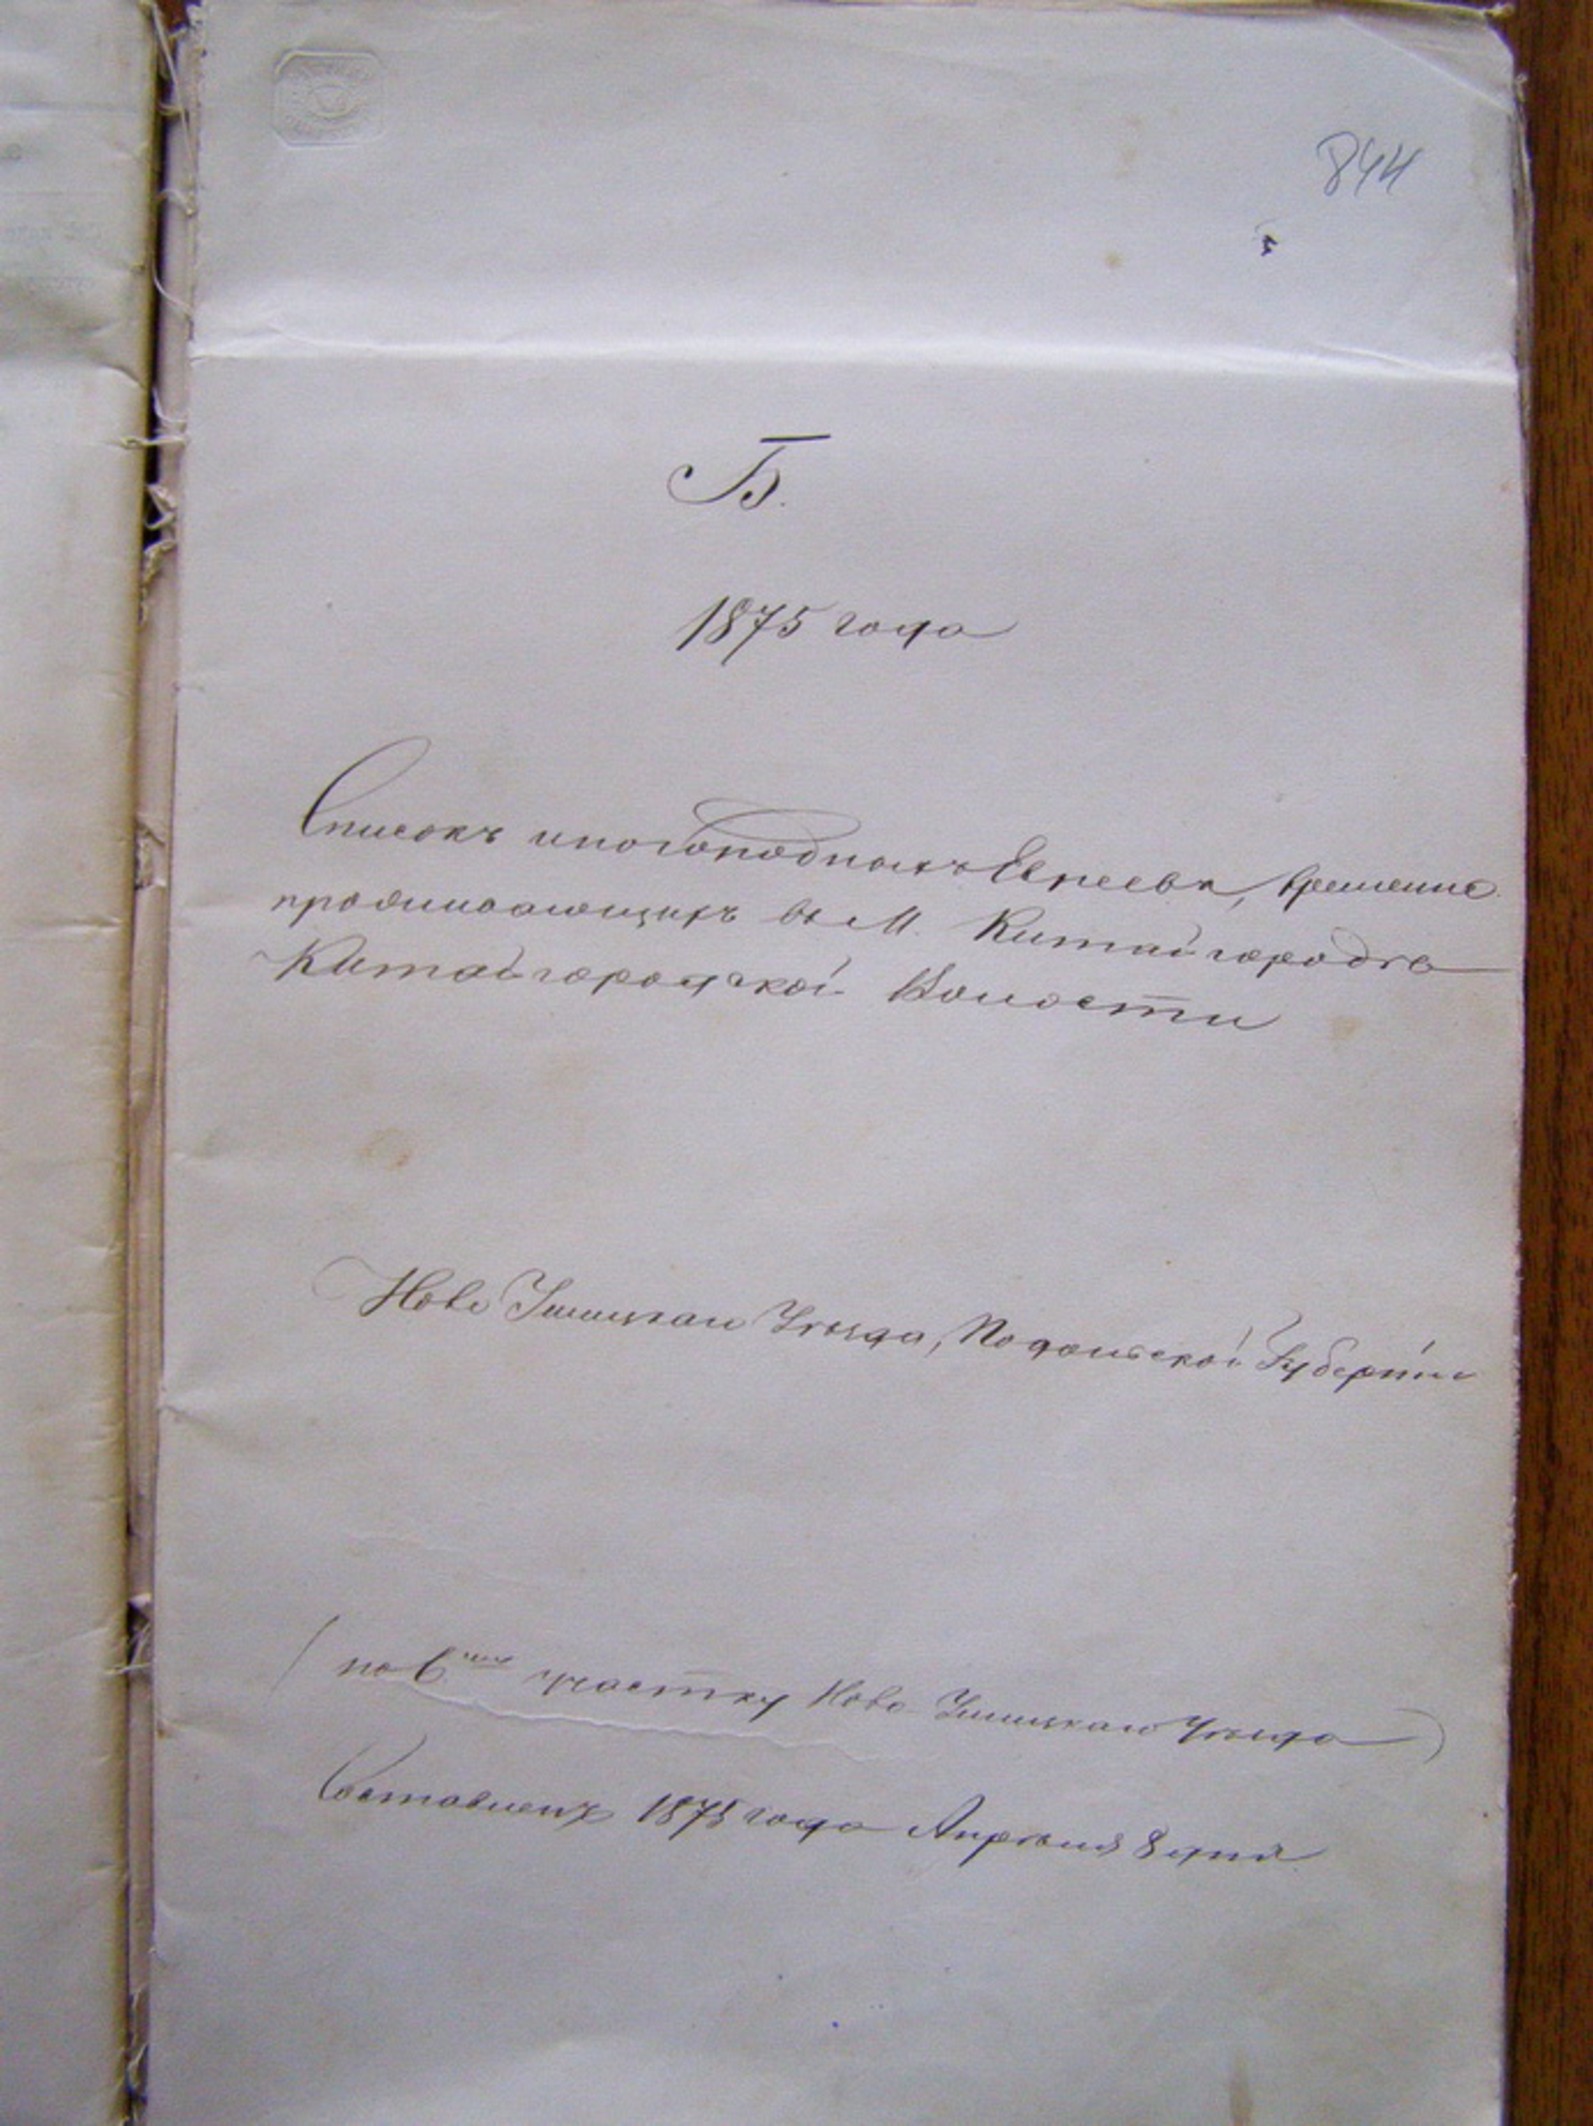 844
Б.
1875 года
Списокъ иногородныхъ Евреевъ, временно
проживающихъ въ М. Китайгородѣ
Китайгородской Волости
Ново Ушицкаго Уѣзда, Подольской Губерніи
(по 6ᵐʸ участку Ново-Ушицкаго Уѣзда)
Составленъ 1875 года Апрѣля 8 дня